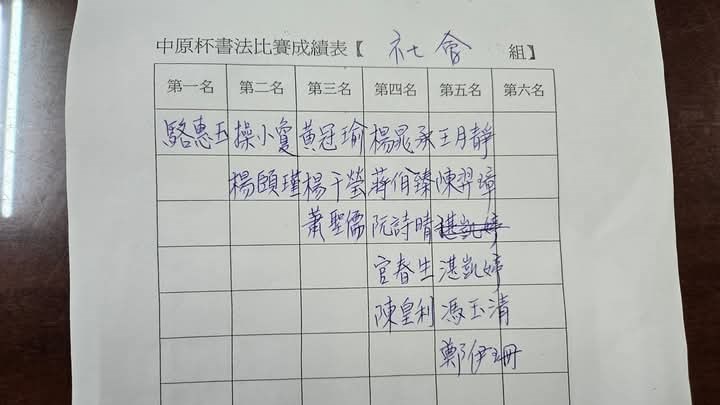 中原杯書法比賽成績表【 社會 組】
第一名 第二名 第三名 第四名 第五名 第六名
駱惠玉 操小瓊 黃冠瑜 楊晁承 王月靜
楊頤瑾 楊千瑩 蔣伯臻 陳羿璋
蕭聖儒 阮詩晴 湛凱婷
官春生 湛凱婷
陳皇利 馮玉清
鄭伊珊